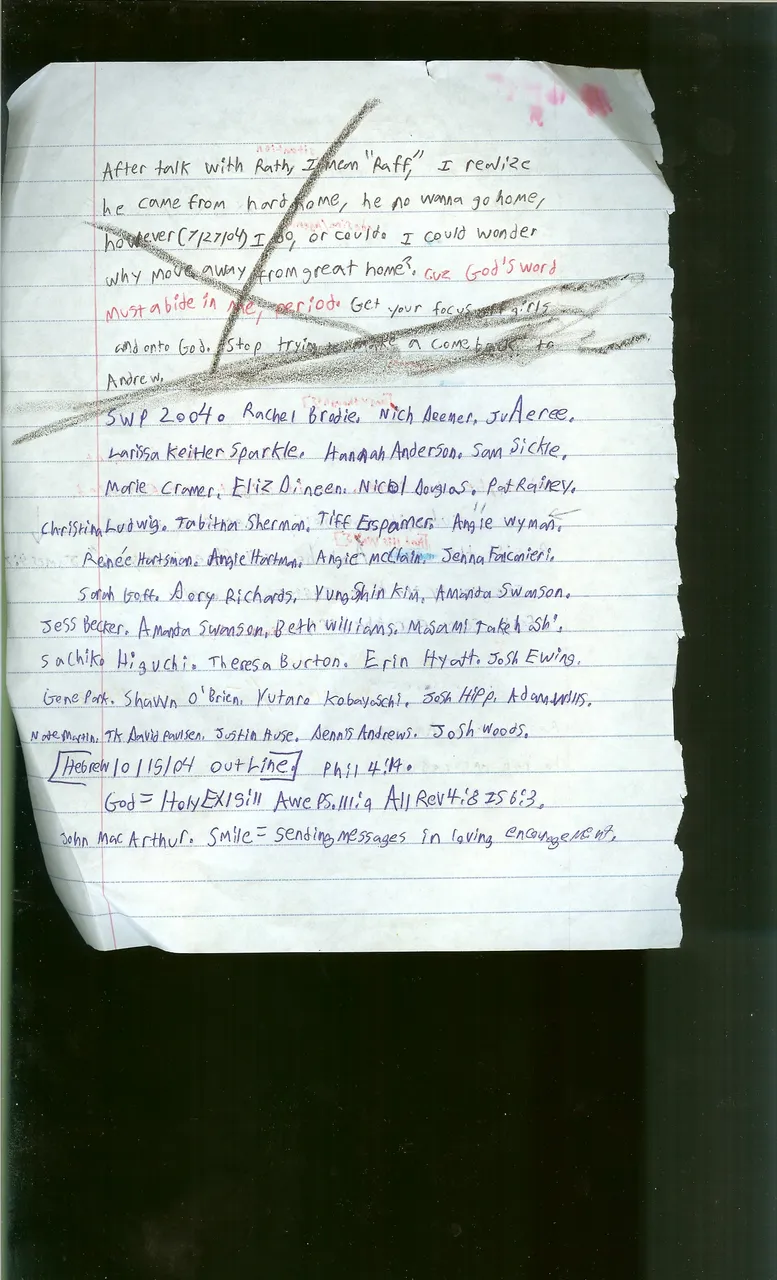 After talk with Rath, I mean "Raff," I realize
he came from hard home, he no wanna go home,
however (7/27/04) I do, or could. I could wonder
why move away from great home? cuz God's word
must abide in me, period. Get your focus off girls
and onto God. Stop trying to make a comeback to
Andrew.
SWP 2004. Rachel Brodie. Nich Deemer. JuAeree.
Larissa Keitler Sparkle. Hannah Anderson. Sam Sickle.
Marie Cramer. Eliz Dineen. Nicol Douglas. Pat Rainey.
Christina Ludwig. Tabitha Sherman. Tiff Erspamer. Angie Wyman.
Renée Hartsman. Angie Hartman. Angie McClain. Jenna Falconieri.
Sarah Goff. Dory Richards. YungShin Kim. Amanda Swanson.
Jess Becker. Amanda Swanson. Beth Williams. Masami Takehashi.
Sachiko Higuchi. Theresa Burton. Erin Hyatt. Josh Ewing.
Gene Park. Shawn O'Brien. Yutaro Kobayaschi. Josh Hipp. Adam Wills.
Nate Martin. TK David Paulsen. Justin Huse. Dennis Andrews. Josh Woods.
Hebrew 10/15/04 outline. Phil 4:14.
God = Holy EX15:11 Awe PS.111:9 All Rev4:8 IS 6:3.
John MacArthur. Smile = sending messages in loving encouragement.